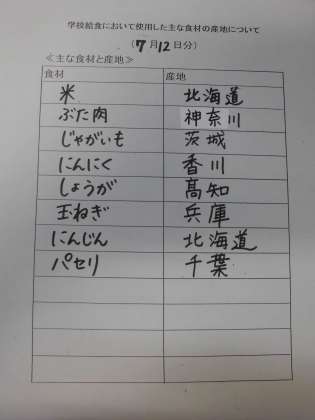 学校給食において使用した主な食材の産地について
(7月12日分)
≪主な食材と産地≫
食材 産地
米 北海道
ぶた肉 神奈川
じゃがいも 茨城
にんにく 香川
しょうが 高知
玉ねぎ 兵庫
にんじん 北海道
パセリ 千葉